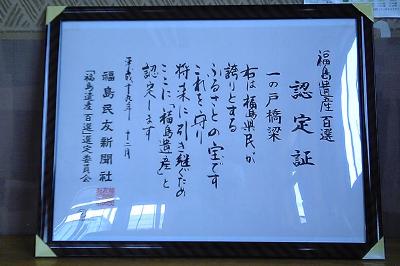 福島遺産百選
認定証
一の戸橋梁
右は福島県民が
誇りとする
ふるさとの宝です
これを守り
将来に引き継ぐため
ここに「福島遺産」と
認定します
平成十九年 十二月
福島民友新聞社
「福島遺産百選」選定委員会